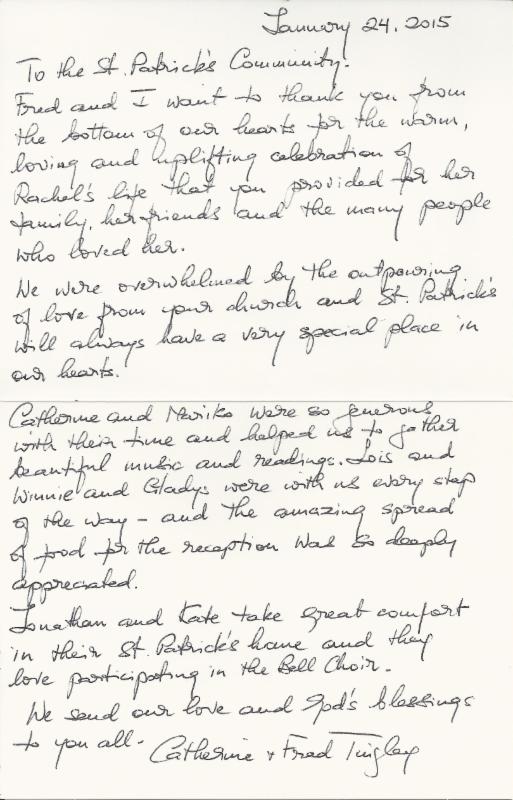 January 24, 2015
To the St. Patrick's Community.
Fred and I want to thank you from
the bottom of our hearts for the warm,
loving and uplifting celebration of
Rachel's life that you provided for her
family, her friends and the many people
who loved her.
We were overwhelmed by the outpouring
of love from your church and St. Patrick's
will always have a very special place in
our hearts.
Catherine and Mariko were so generous
with their time and helped us to gather
beautiful music and readings. Lois and
Winnie and Gladys were with us every step
of the way - and the amazing spread
of food for the reception was so deeply
appreciated.
Jonathan and Kate take great comfort
in their St. Patrick's home and they
love participating in the Bell Choir.
We send our love and God's blessings
to you all. Catherine & Fred Tingley